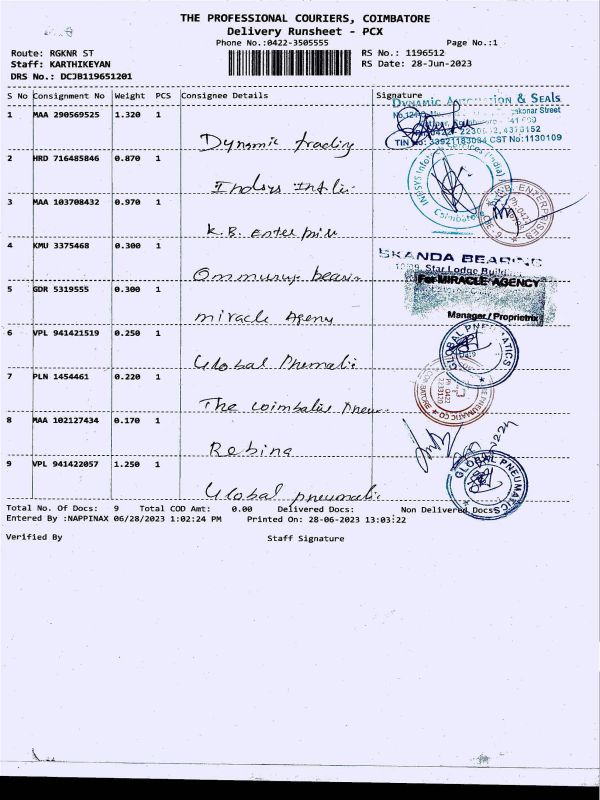 THE PROFESSIONAL COURIERS, COIMBATORE
Delivery Runsheet - PCX
Phone No.:0422-3505555
Page No.:1
Route: RGKNR ST
RS No.: 1196512
Staff: KARTHIKEYAN
RS Date: 28-Jun-2023
DRS No.: DCJB119651201
S No Consignment No Weight PCS Consignee Details Signature
1 MAA 290569525 1.320 1
Dynamic trading
DYNAMIC & SEALS
TIN CST No:1130109
2 HRD 716485846 0.870 1
Indsys
INDSYS (India)
Coimbatore
3 MAA 103708432 0.970 1
K.B. Enterprise
K.B. ENTERPRISES
4 KMU 3375468 0.300 1
SKANDA BEARING
Star Lodge
5 GDR 5319555 0.300 1
miracle Agency
For MIRACLE AGENCY
Manager / Proprietrix
6 VPL 941421519 0.250 1
Global Pnematic
GLOBAL PNEUMATICS
7 PLN 1454461 0.220 1
The
PNEUMATIC CO
8 MAA 102127434 0.170 1
Rebina
9 VPL 941422057 1.250 1
Global pneumatic
GLOBAL PNEUMATICS
Total No. Of Docs: 9 Total COD Amt: 0.00 Delivered Docs: Non Delivered Docs
Entered By :NAPPINAX 06/28/2023 1:02:24 PM Printed On: 28-06-2023 13:03:22
Verified By Staff Signature